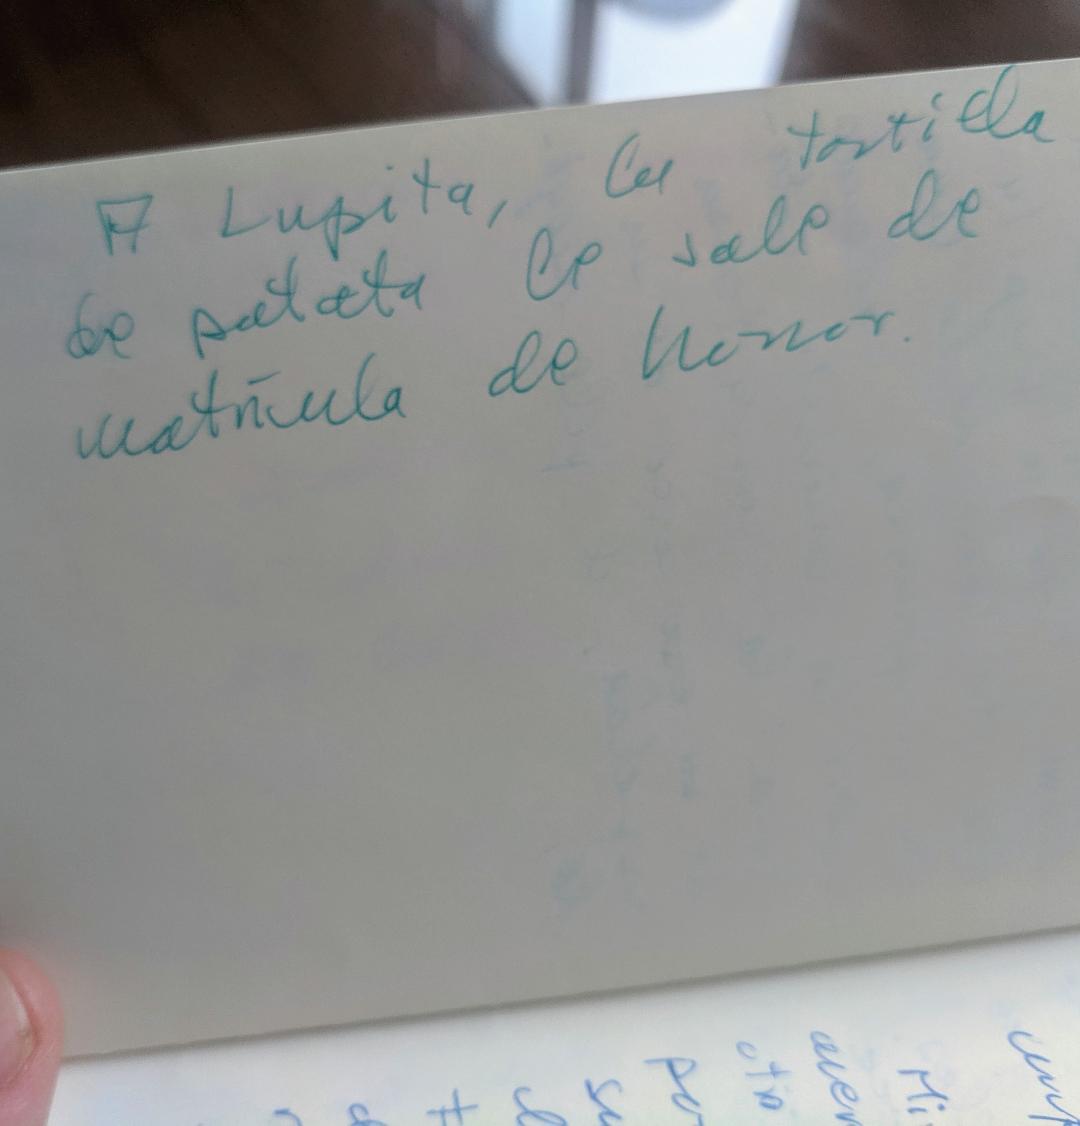 A Lupita, la tortilla
de patata le sale de
matrícula de honor.